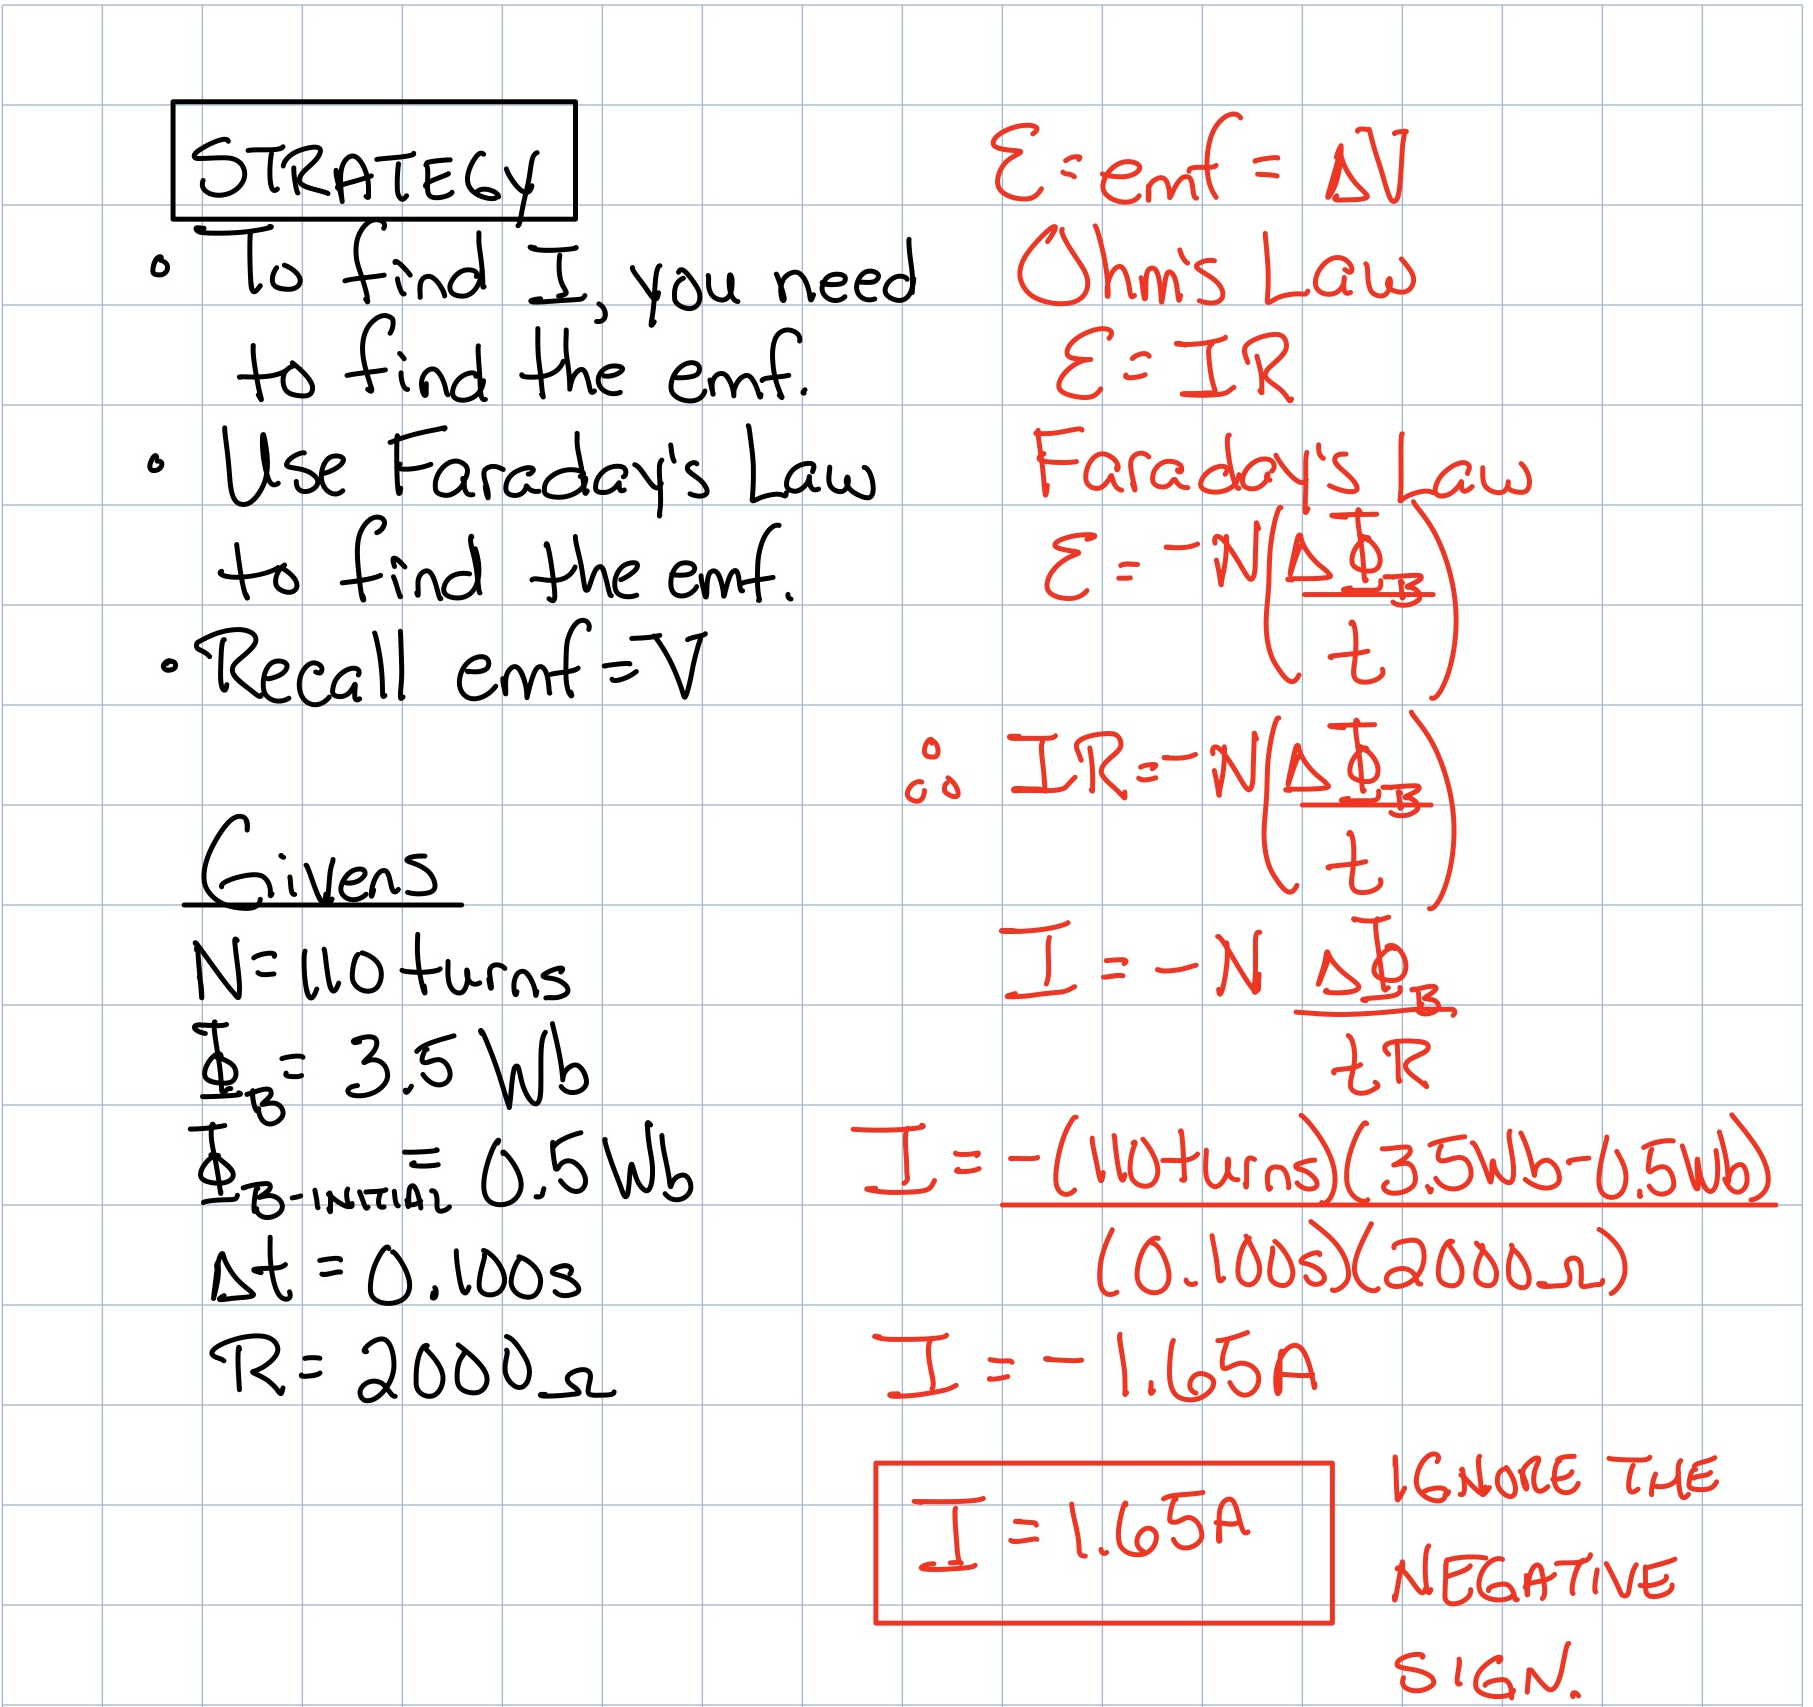 STRATEGY
• To find I, you need
to find the emf.
• Use Faraday's Law
to find the emf.
• Recall emf = V
Givens
N = 110 turns
Φ_B = 3.5 Wb
Φ_B-INITIAL = 0.5 Wb
Δt = 0.100s
R = 2000Ω
ℰ = emf = ΔV
Ohm's Law
ℰ = IR
Faraday's Law
ℰ = -N(ΔΦ_B / t)
∴ IR = -N(ΔΦ_B / t)
I = -N ΔΦ_B / tR
I = -(110 turns)(3.5Wb-0.5Wb) / (0.100s)(2000Ω)
I = -1.65A
I = 1.65A
IGNORE THE
NEGATIVE
SIGN.